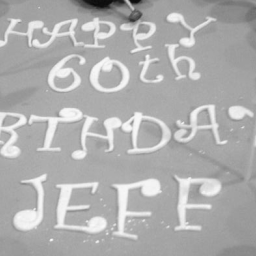 HAPPY
60th
BIRTHDAY
JEFF